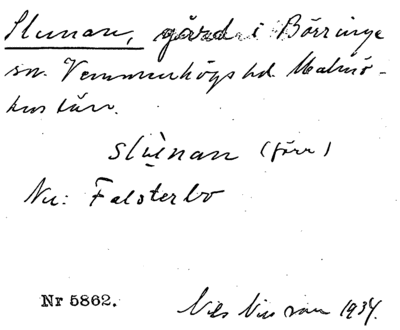 Slunan, gård i Börringe
sn. Vemmenhögs hd. Malmö-
hus län.
slùnan (förr)
Nu: Falsterbo
Nr 5862.
Nils Nilsson 1934.